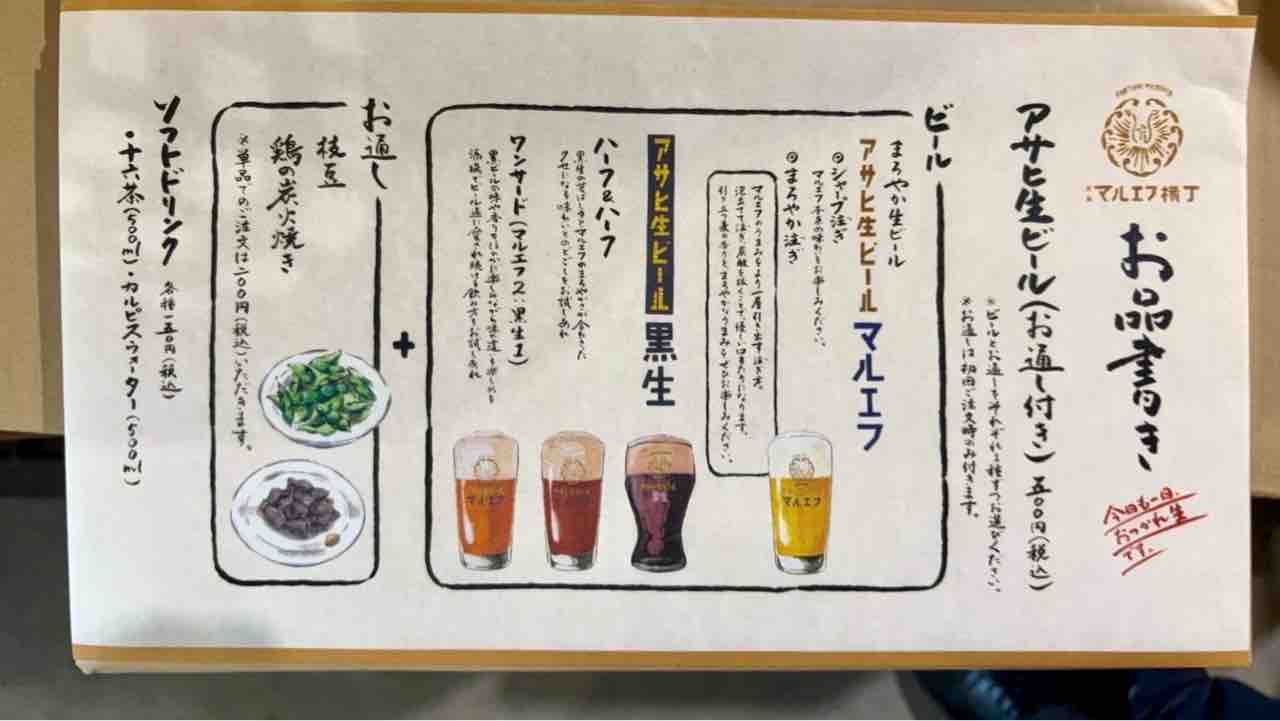 マルエフ横丁
お品書き
今日も一日
おつかれ生
です。
アサヒ生ビール(お通し付き) 五〇〇円(税込)
※ビールとお通しをそれぞれ一種ずつお選びください。
※お通しは初回ご注文時のみ付きます。
ビール
まろやか生ビール
アサヒ生ビール マルエフ
◎シャープ注ぎ
マルエフ本来の味わいをお楽しみください。
◎まろやか注ぎ
マルエフのうまみをより一層引き出す注ぎ方。
泡立てて注ぎ、炭酸を抜くことで、優しい口あたりになります。
引き立つ麦の香りと、まろやかなうまみをぜひお楽しみください。
アサヒ生ビール 黒生
ハーフ&ハーフ
黒生の香ばしさとマルエフのまろやかさが合わさった
クセになる味わいとのどごしをお試しあれ
ワンサード(マルエフ2:黒生1)
黒ビールの味や香りをほのかに楽しみながら味の違いを楽しめる
酒場でビール通に愛され続ける飲み方をお試しあれ
+
お通し
枝豆
鶏の炭火焼き
※単品でのご注文は二〇〇円(税込)いただきます。
ソフトドリンク 各種一五〇円(税込)
・十六茶(500ml)・カルピスウォーター(500ml)
マルエフ
マルエフ